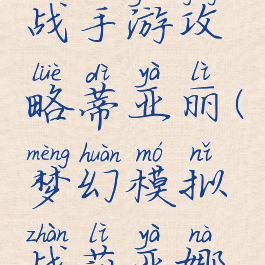 战手游攻
lüè dì yà lì
略蒂亚丽(
mèng huàn mó nǐ
梦幻模拟
zhàn lì yà nà
战莉亚娜